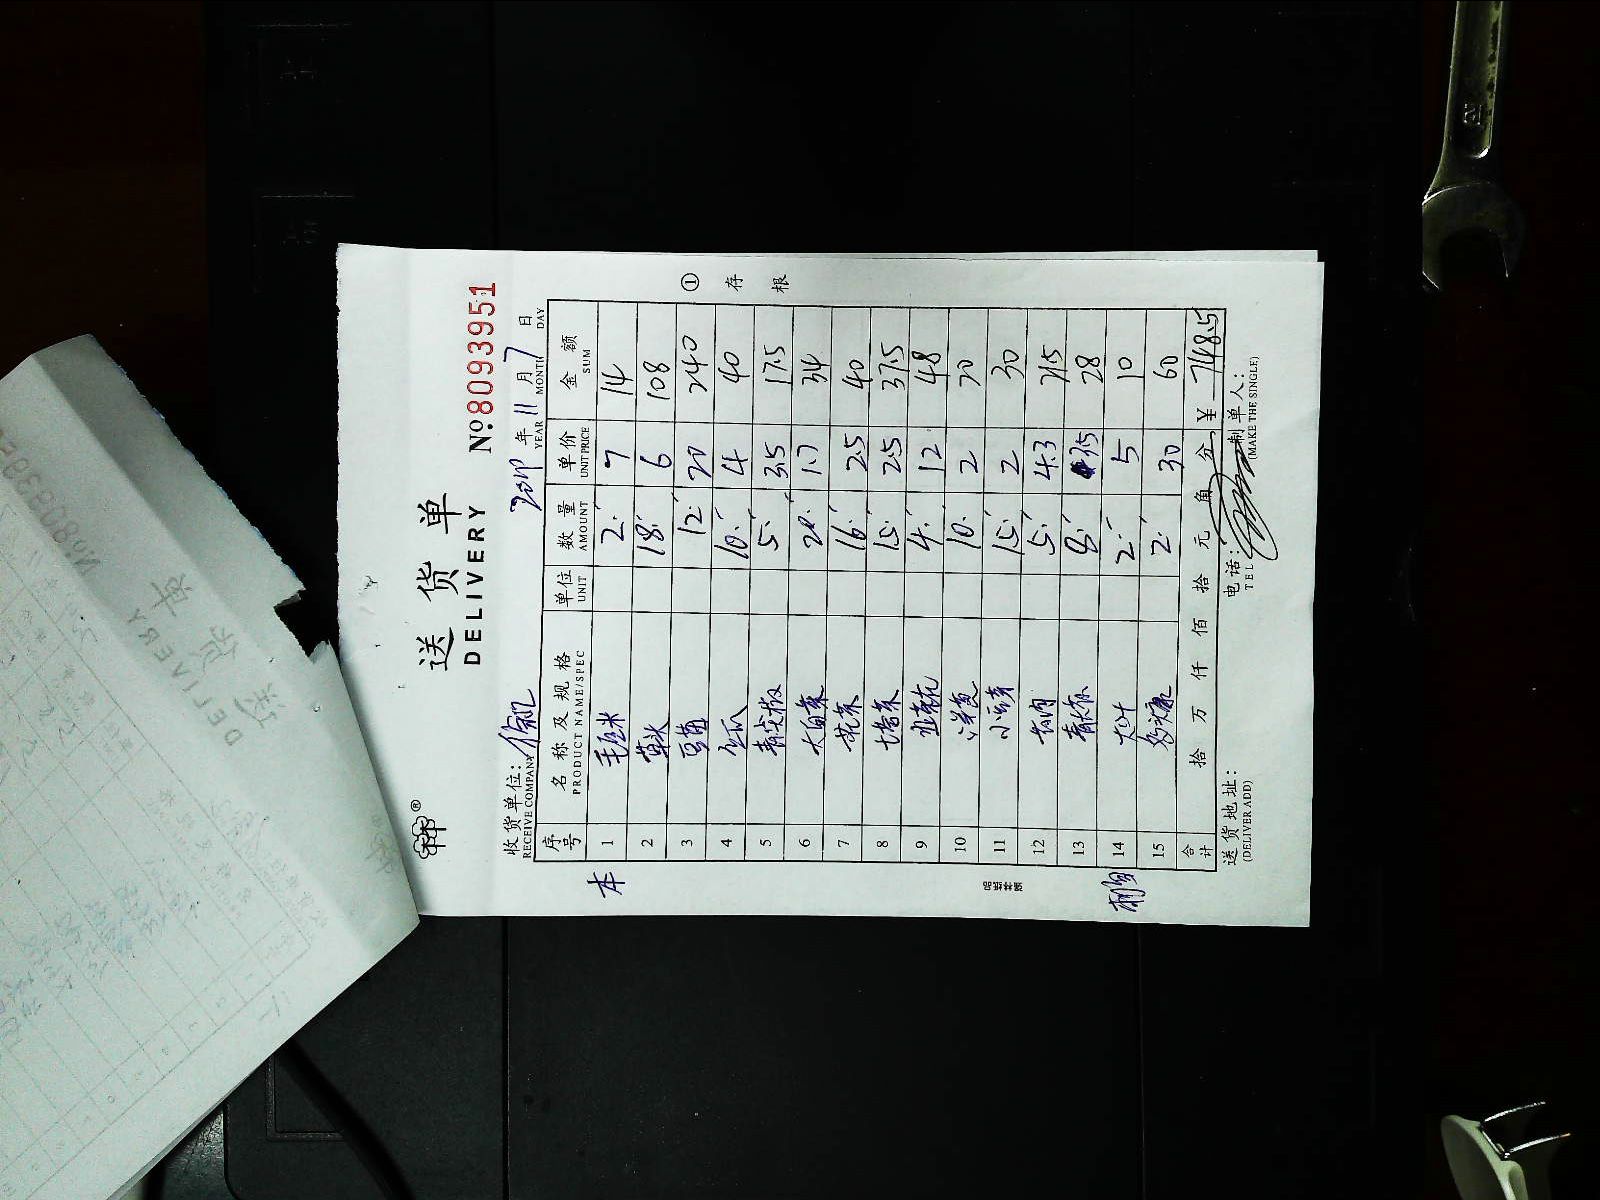 送货单
DELIVERY
№8093951
收货单位:
RECEIVE COMPANY
2019 年 11 月 7 日
YEAR MONTH DAY
序号 名称及规格 单位 数量 单价 金额
PRODUCT NAME/SPEC UNIT AMOUNT UNIT PRICE SUM
1 毛豆米 2 7 14
2 草头 18 6 108
3 豆苗 12 20 240
4 冬瓜 10 4 40
5 青尖椒 5 3.5 17.5
6 大白菜 20 1.7 34
7 花菜 16 2.5 40
8 塔菜 15 2.5 37.5
9 西兰花 4 12 48
10 洋葱 10 2 20
11 15 2 30
12 5 4.3 21.5
13 8 3.5 28
14 大叶 2 5 10
15 2 30 60
合计 拾 万 仟 佰 拾 元 角 分 ¥ 748.5
送货地址: 电话: 制单人:
(DELIVER ADD) TEL (MAKE THE SINGLE)
① 存根
本
送货单
DELIVERY